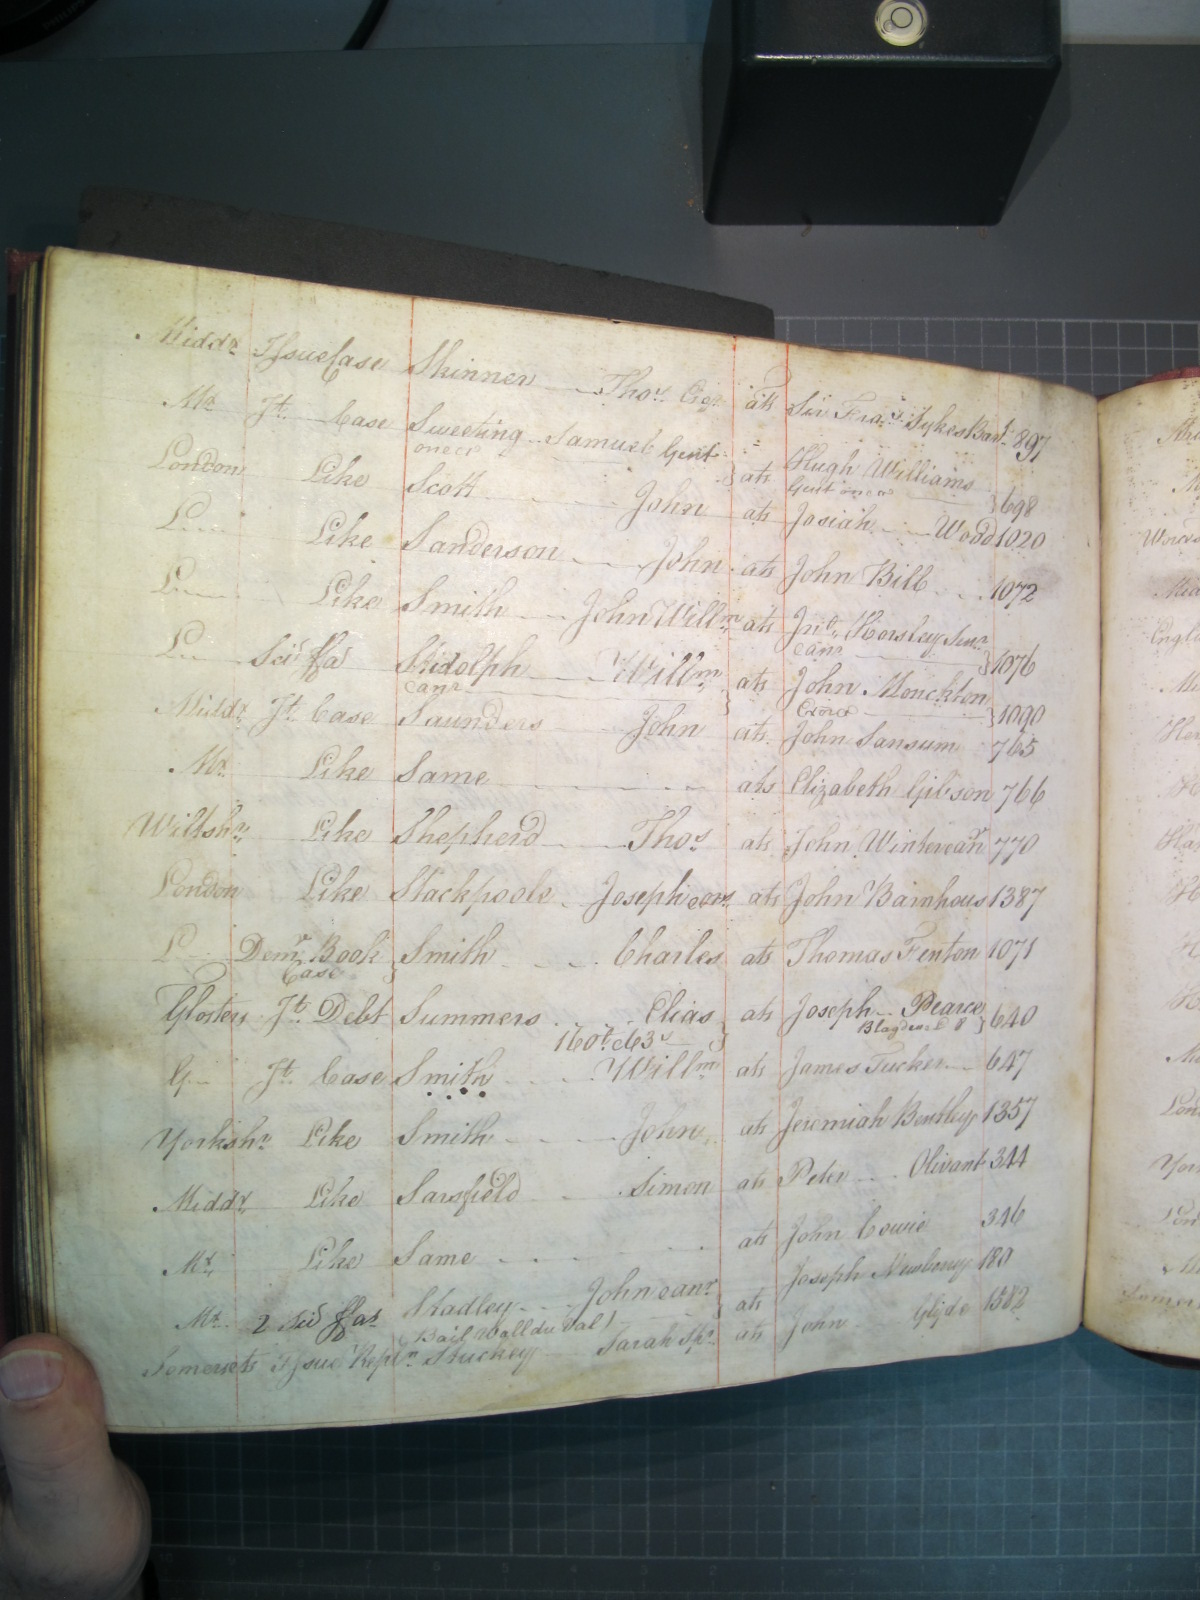 Middx Issue Case Skinner Thos. Esqr. ats Sir Fras. Sykes Bart. 897
Mx Jt. Case Sweeting Samuel Gent ats Hugh Williams
one &c Gent one &c 698
London Like Scott John ats Josiah Wood 1020
L Like Sanderson John ats John Bill 1072
L Like Smith John Willm ats Jno. Horsley Senr
canr 1076
L Sci ffa Stidolph Willm ats John Monckton
canr Exors 1090
Middx Jt. Case Saunders John ats John Sansum 765
Mx Like Same ats Elizabeth Gibson 766
Wiltshr. Like Shepherd Thos ats John Wintervear 770
London Like Stackpoole Joseph ats John Barnhous 1387
L Demr. Book Smith Charles ats Thomas Fenton 1071
Case
Glosters Jt. Debt Summers Elias ats Joseph Pearce 640
160£ & 63s
G Jt. Case Smith Willm ats James Tucker 647
Yorkshr. Like Smith John ats Jeremiah Bentley 1357
Middx Like Sarsfield Simon ats Peter Olivant 344
Mx Like Same ats John Cowie 346
Mx 2 Sci ffas Stadley John canr ats Joseph Newberry 180
Somersets Issue Repln Stuckey Sarah Spr. ats John Glyde 1382